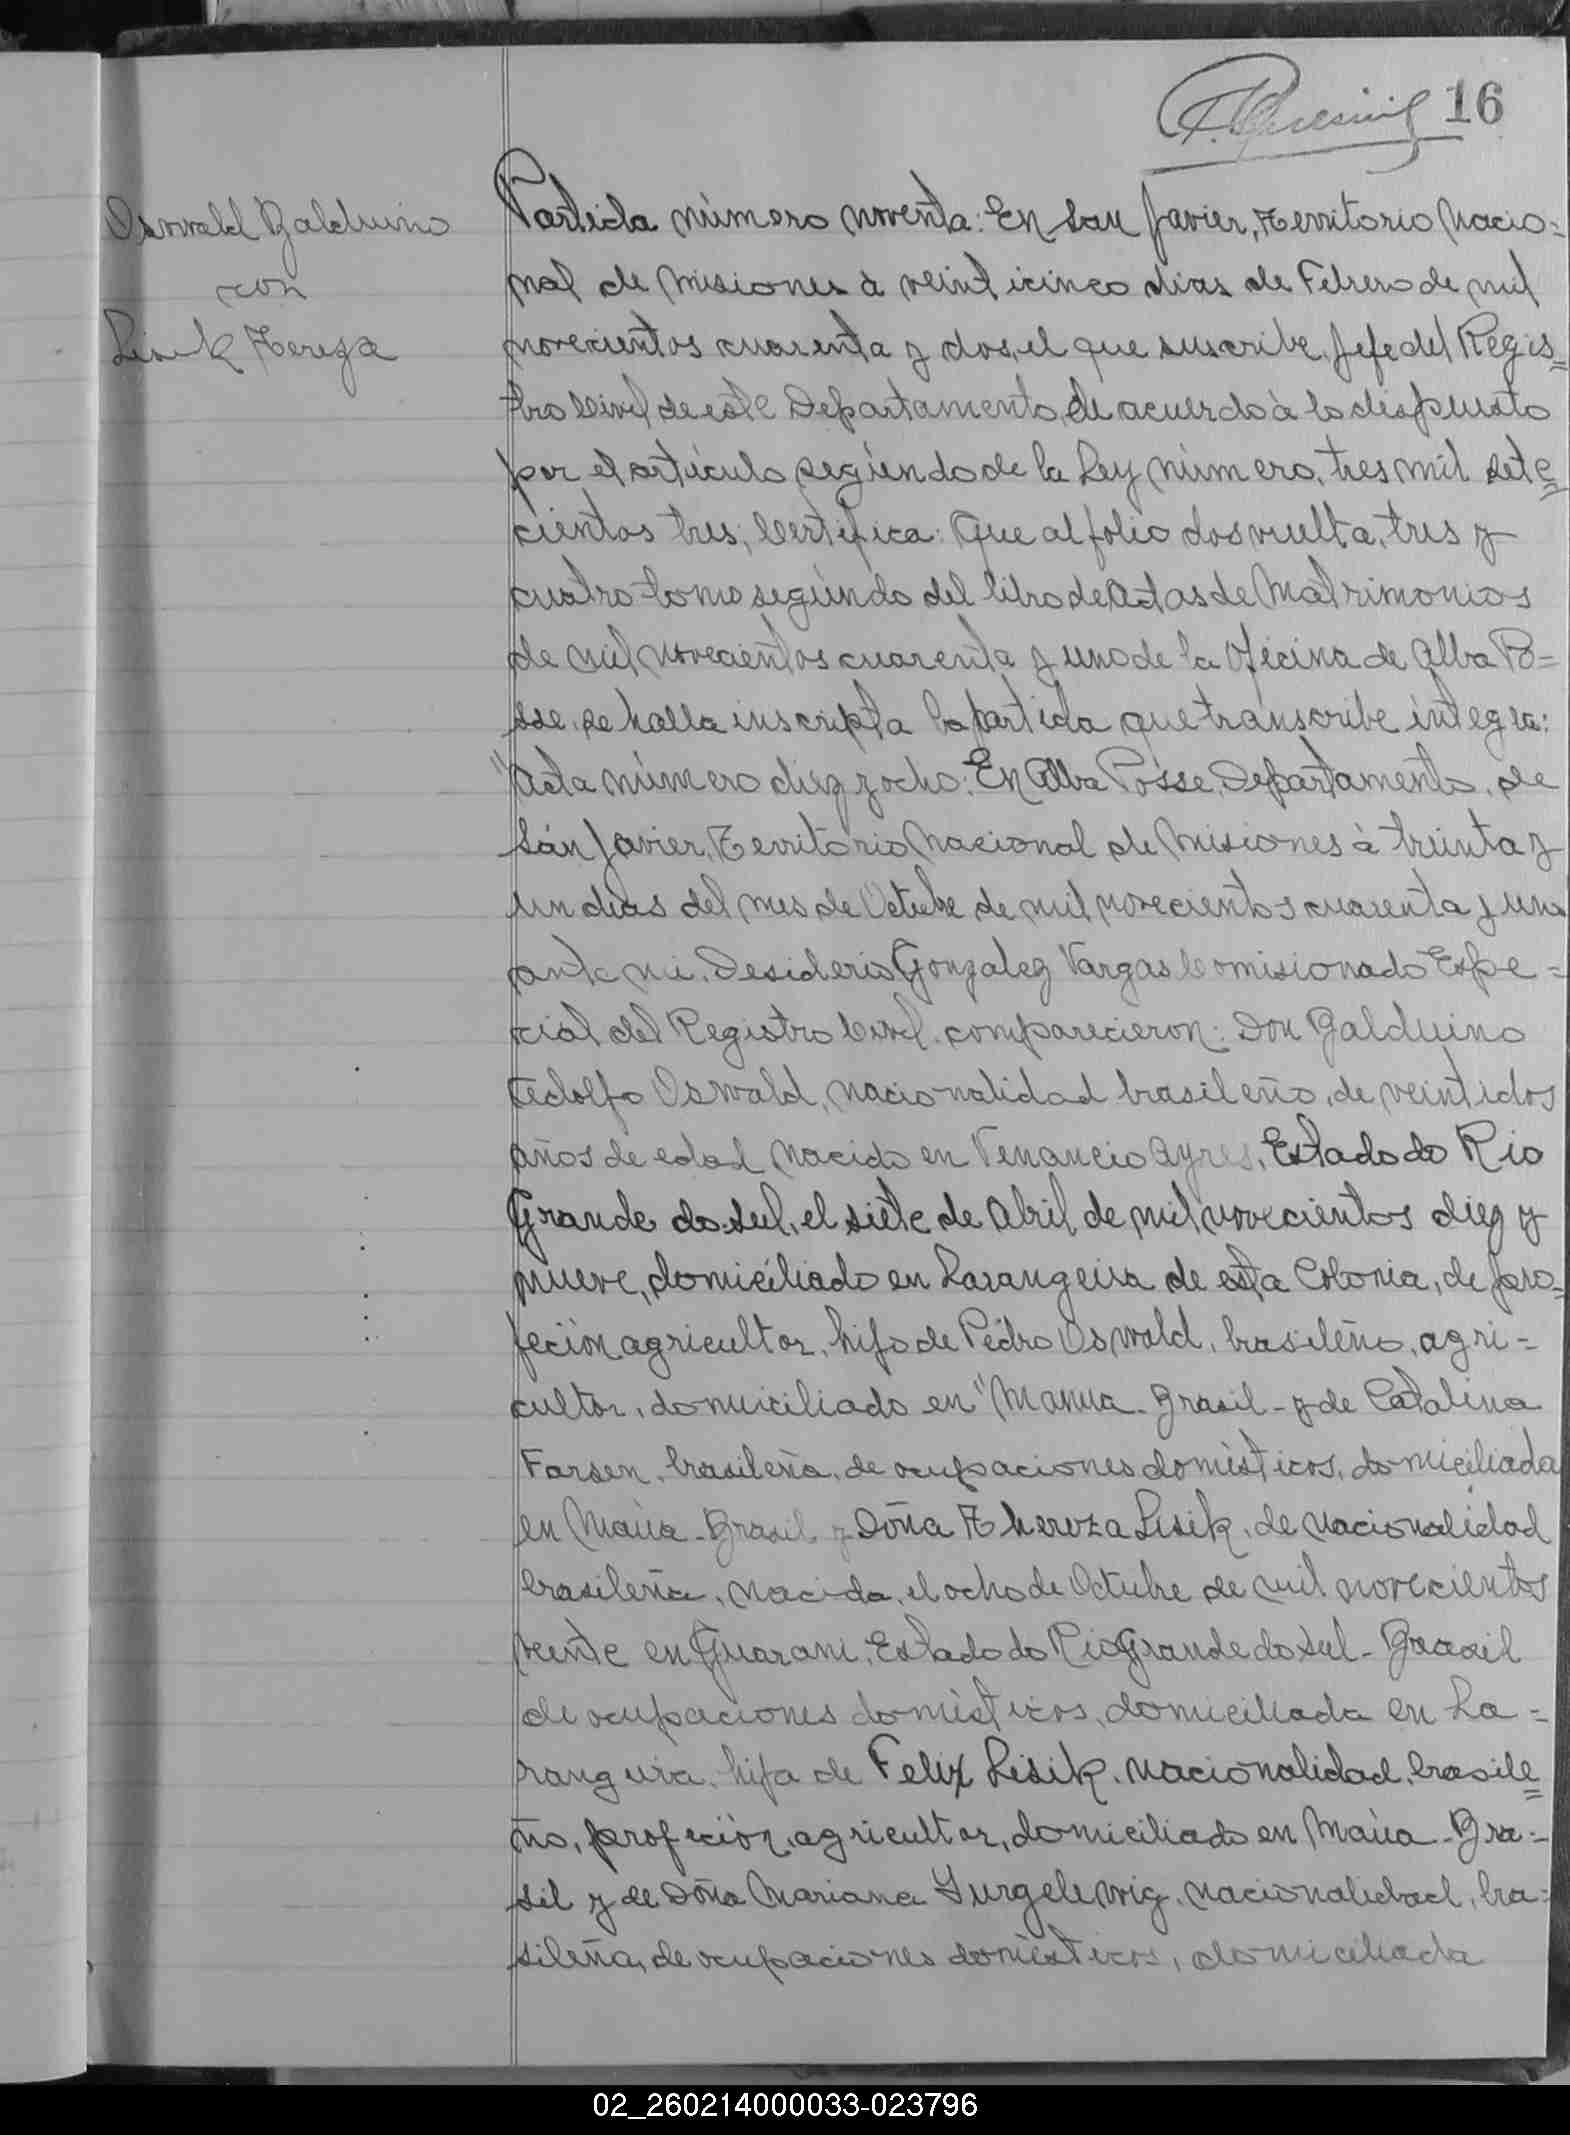 16
Oswald Balduino
con
Lisik Tereza
Partida número noventa: En San Javier, Territorio Nacio=
nal de Misiones à veinticinco dias de Febrero de mil
novecientos cuarenta y dos, el que suscribe, Jefe del Regis=
tro Civil de este Departamento, de acuerdo à lo dispuesto
por el artículo segúndo de la Ley número, tres mil sete=
cientos tres, Certifica: Que al folio dos vuelta, tres y
cuatro tomo segúndo del libro de Actas de Matrimonios
de mil novecientos cuarenta y uno de la Oficina de Alba Po=
sse, se halla inscripta la partida que transcribe íntegra:
"Acta número diez y ocho: En Alba Posse, Departamento, de
Sán Javier, Territorio Nacional de Misiones à treinta y
un dias del mes de Octubre de mil novecientos cuarenta y uno
ante mi, Desiderio Gonzalez Vargas Comisionado Espe=
cial del Registro Civil, comparecieron: Don Balduino
Oswald, nacionalidad brasileño, de veintidos
años de edad nacido en Venancio Ayres, Estado do Rio
Grande do Sul, el siete de Abril de mil novecientos diez y
nueve, domiciliado en Larangeira de esta Colonia, de pro=
feción agricultor, hijo de Pédro Oswald, brasileño, agri=
cultor, domiciliado en "Manua - Brasil - y de Catalina
Farsen, brasileña, de ocupaciones domésticos, domiciliada
en Maúa - Brasil y Doña Thereza Lisik, de nacionalidad
brasileña, nacida, el ocho de Octubre de mil novecientos
veinte en Guarani, Estado do Rio Grande do Sul - Brasil
de ocupaciones domésticos, domiciliada en La=
rangeira, hija de Felix Lisik, nacionalidad, brasile=
ño, profeción, agricultor, domiciliado en Maúa - Bra=
sil y de Doña Mariana Yurgelewig, nacionalidad, bra=
sileña, de ocupaciones domésticos, domiciliada
02_260214000033-023796